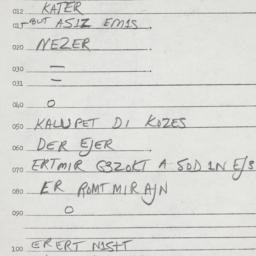 012 KATER
015 BUT ASIZ EMAS
020 NEZER
030 =
031 =
040 O
050 KALUPET DI KOZES
060 DER EJER
070 ERTMIR G3ZOKT A SOD IN EJS
080 ER ROMT MIR AJN
090 O
100 ER ERT NISHT